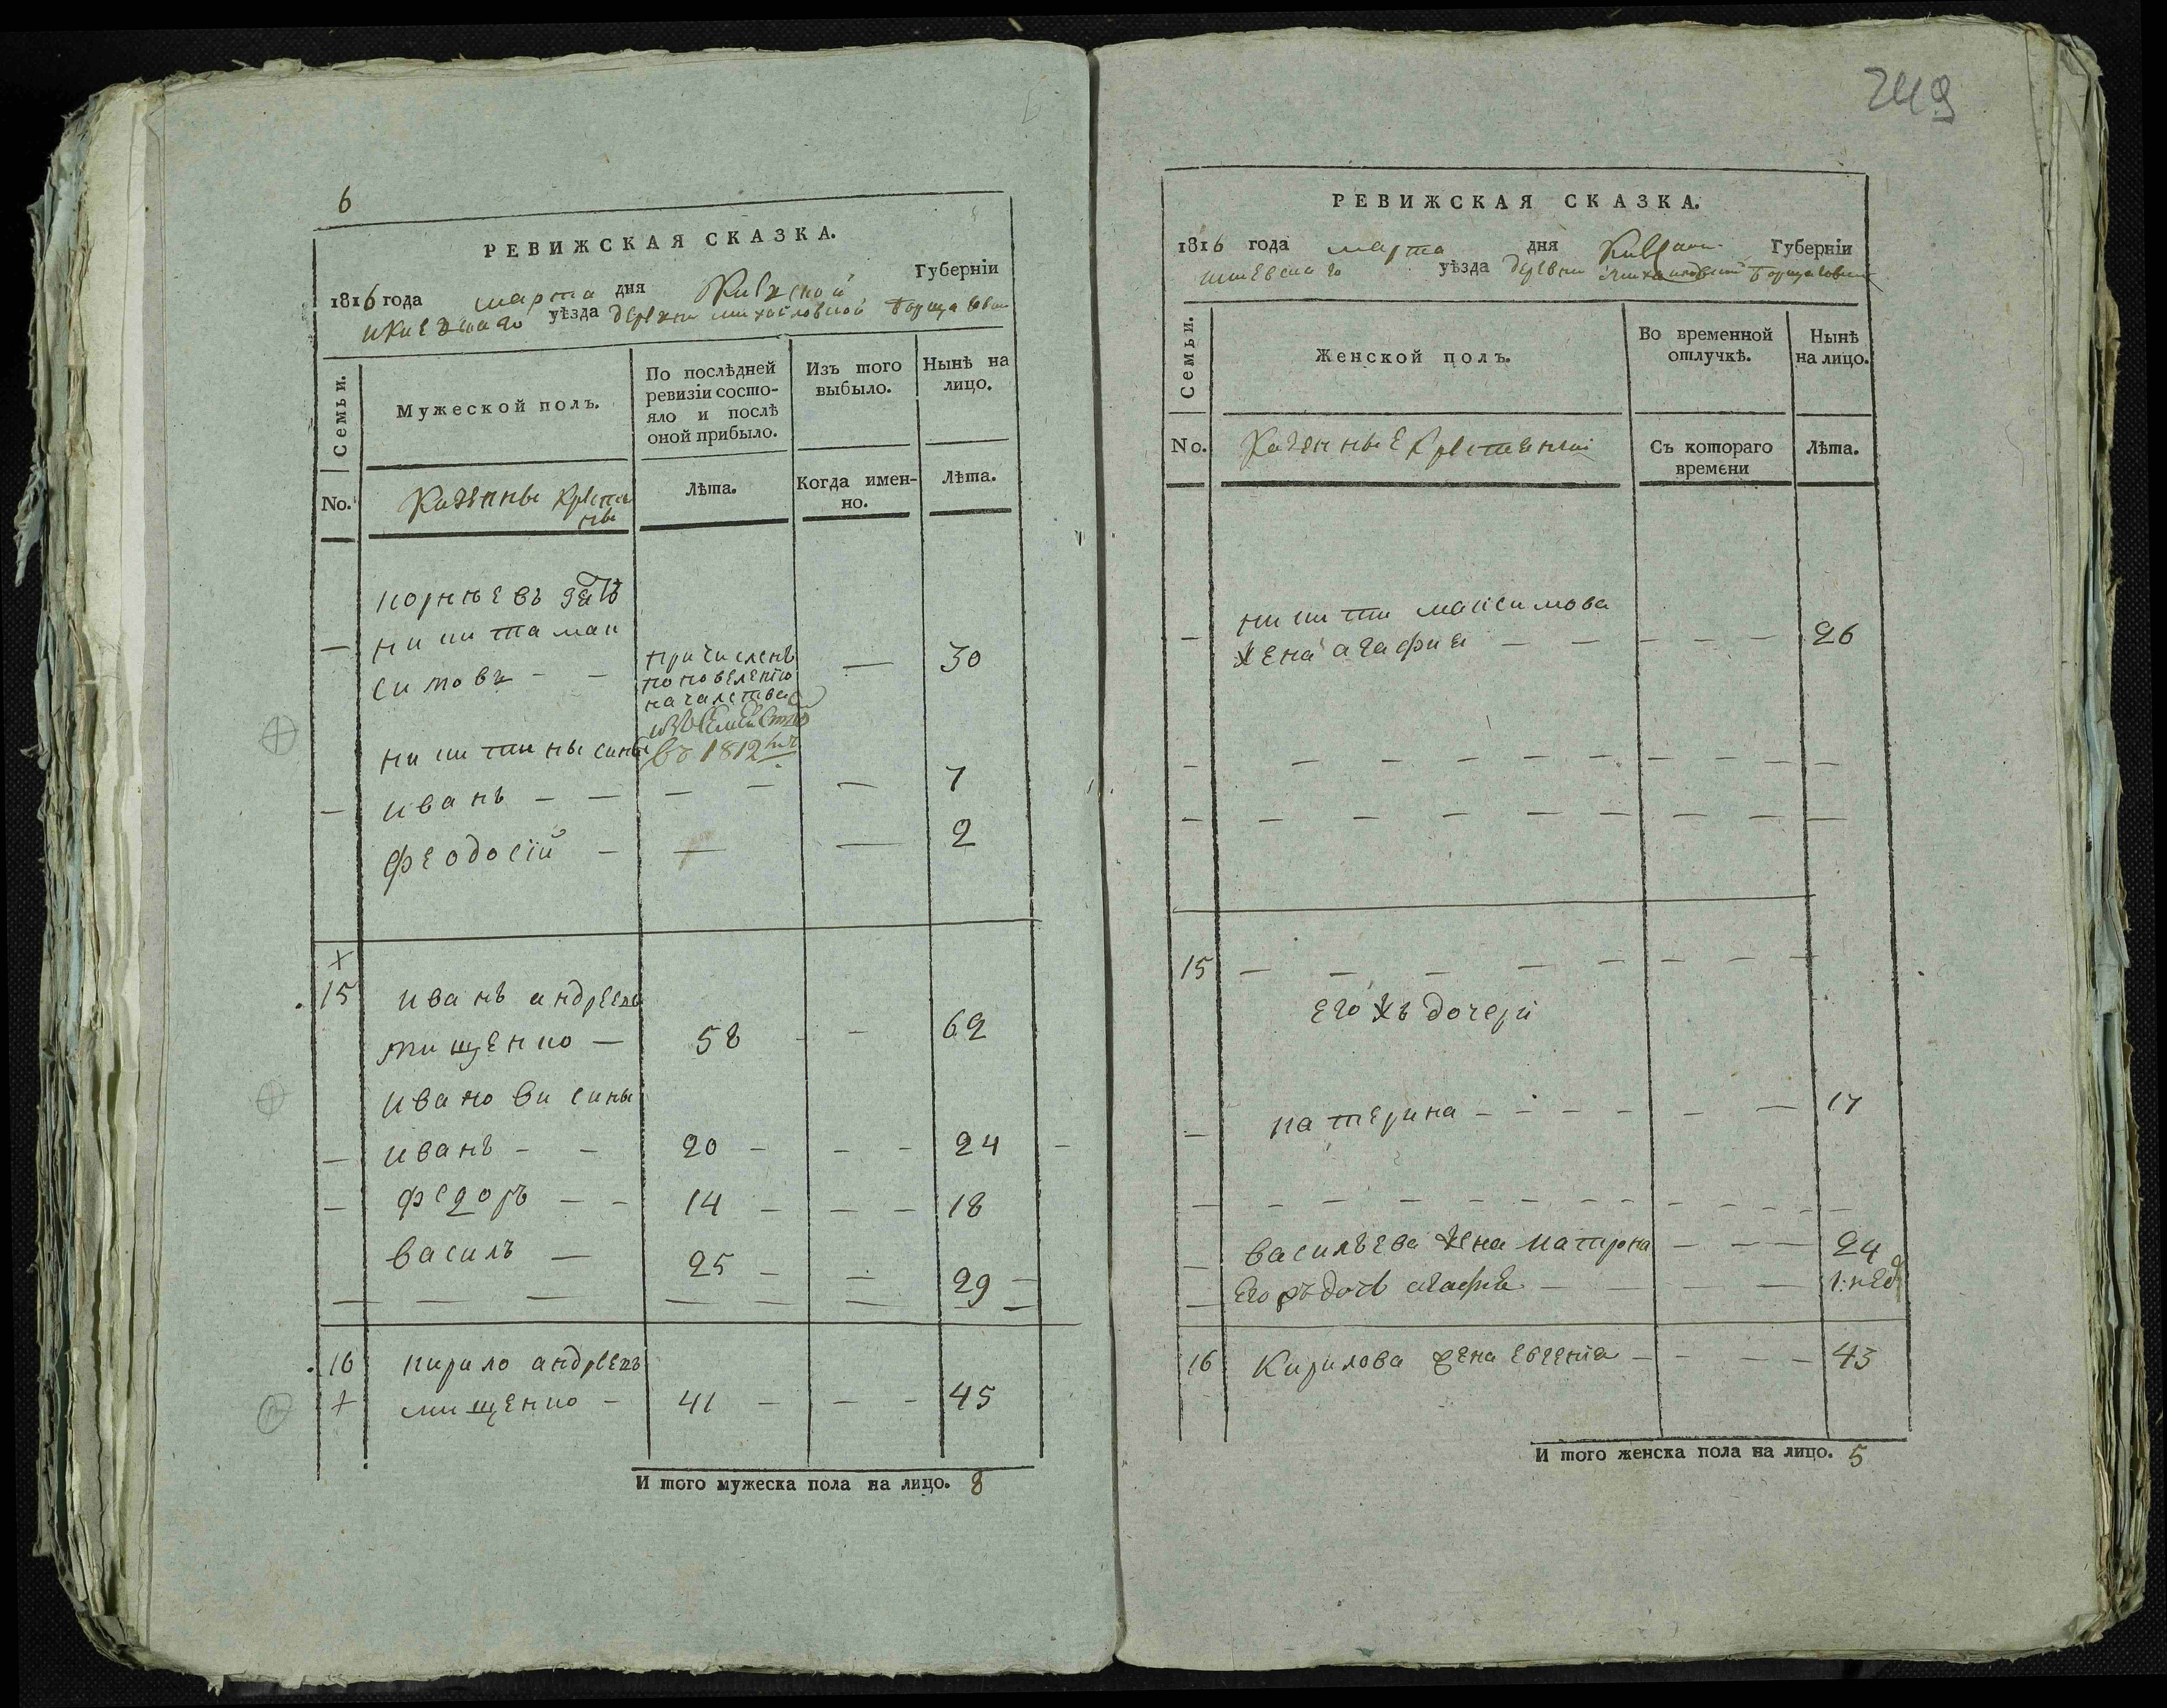 6
РЕВИЖСКАЯ СКАЗКА.
1816 года марта дня Киевской Губерніи
Киевскаго уѣзда деревни михайловской Борщаговки
Семьи.
Мужеской полъ.
По послѣдней ревизіи состо-
яло и послѣ
оной прибыло.
Изъ того
выбыло.
Нынѣ на
лицо.
No.
Казенные Крестья
не
Лѣта.
Когда имен-
но.
Лѣта.
корнѣевъ зять
— никита мак
симовъ — — — 30
причисленъ
по повелению
началства
въ 1812
никитины сины
— иванъ — — — — — 7
феодосій — — — 2
+
15 иванъ андреевъ
мищенко — 58 - — 62
иванови сины
— иванъ - — 20 - — - 24 -
— федоръ — - 14 — — — 18
василъ — 25 — — 29 —
16 кирило андреевъ
+ мищенко — 41 — — - 45
И того мужеска пола на лицо. 8
249
РЕВИЖСКАЯ СКАЗКА.
1816 года марта дня Киевской Губерніи
Киевскаго уѣзда деревни Михайловской Борщаговки
Семьи.
Женской полъ.
Во временной
отлучкѣ.
Нынѣ
на лицо.
No.
Казенные Крестянки
Съ котораго
времени
Лѣта.
никити максимова
— жена агафия — — — — — 26
15 — — — — — — — —
его жъ дочери
— катерина — — — — — — 17
— василѣва жена катирна — — — 24
— Его жъ дочъ агафия — — — 1: нед
16 Кирилова жена Евгения — — — — 43
И того женска пола на лицо. 5